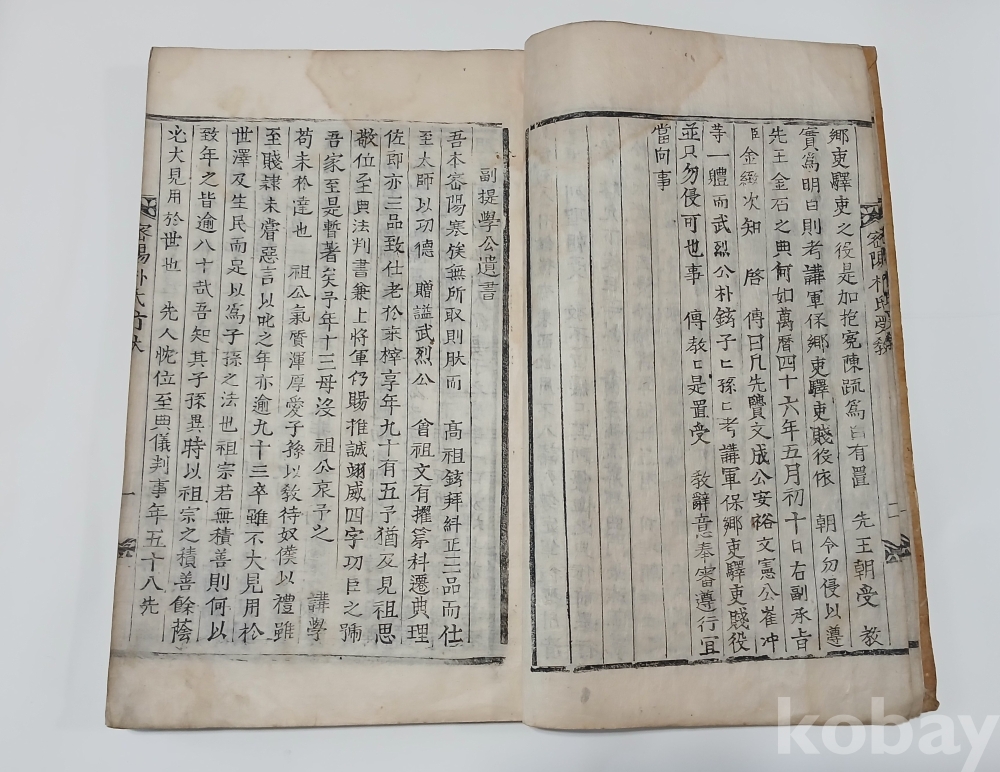 鄉吏驛吏之役是加抱冤陳疏爲白有置 先王朝受 教
實爲明白則考講軍保鄉吏驛吏賤役依 朝令勿侵以遵
先王金石之典何如萬曆四十六年五月初十日右副承旨
臣金緻次知 啓 傳曰凡先賢文成公安裕文憲公崔冲
等一體而武烈公朴鉉子〻孫〻考講軍保鄉吏驛吏賤役
並只勿侵可也事 傳教〻是置受 教辭意奉審遵行宜
當向事
副提學公遺書
吾本密陽寒族無所取則肽而 高祖鉉拜糾正三品而仕
至太師以功德 贈諡武烈公 曾祖文有擢第科遷典理
佐郎亦三品致仕老於萊梓享年九十有五予猶及見祖思
敬位至典法判書兼上將軍仍賜推誠翊威四字功臣之號
吾家至是暫著矣予年十三母沒 祖公哀予之 講學
苟未於達也 祖公氣質渾厚愛子孫以敎待奴僕以禮雖
至賤隸未嘗惡言以叱之年亦逾九十三卒雖不大見用於
世澤及生民而足以爲子孫之法也祖宗若無積善則何以
致年之皆逾八十哉吾知其子孫異時以祖宗之積善餘蔭
必大見用於世也 先人忱位至典儀判事年五十八先
一
kobay